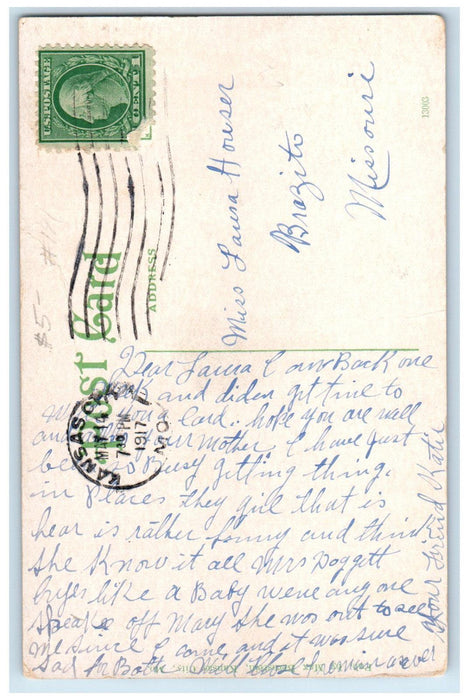 U.S. POSTAGE
1 CENT 1
KANSAS CITY
MAY 14
7 30 PM
1917
MO.
Post Card
ADDRESS
13003
$5-
#14
Miss Laura Houser
Brazito
Missouri
Dear Laura I am Back one
week and diden get time to
you a Card.. hope you are well
and your mother I have just
been so Busy getting things
in Places they girl that is
hear is rather funny and think
she Know it all Mrs Doggett
like a Baby were any one
speaks off Mary she was out to see
me since I came and it was sure
sad for Both
Your Friend Katie